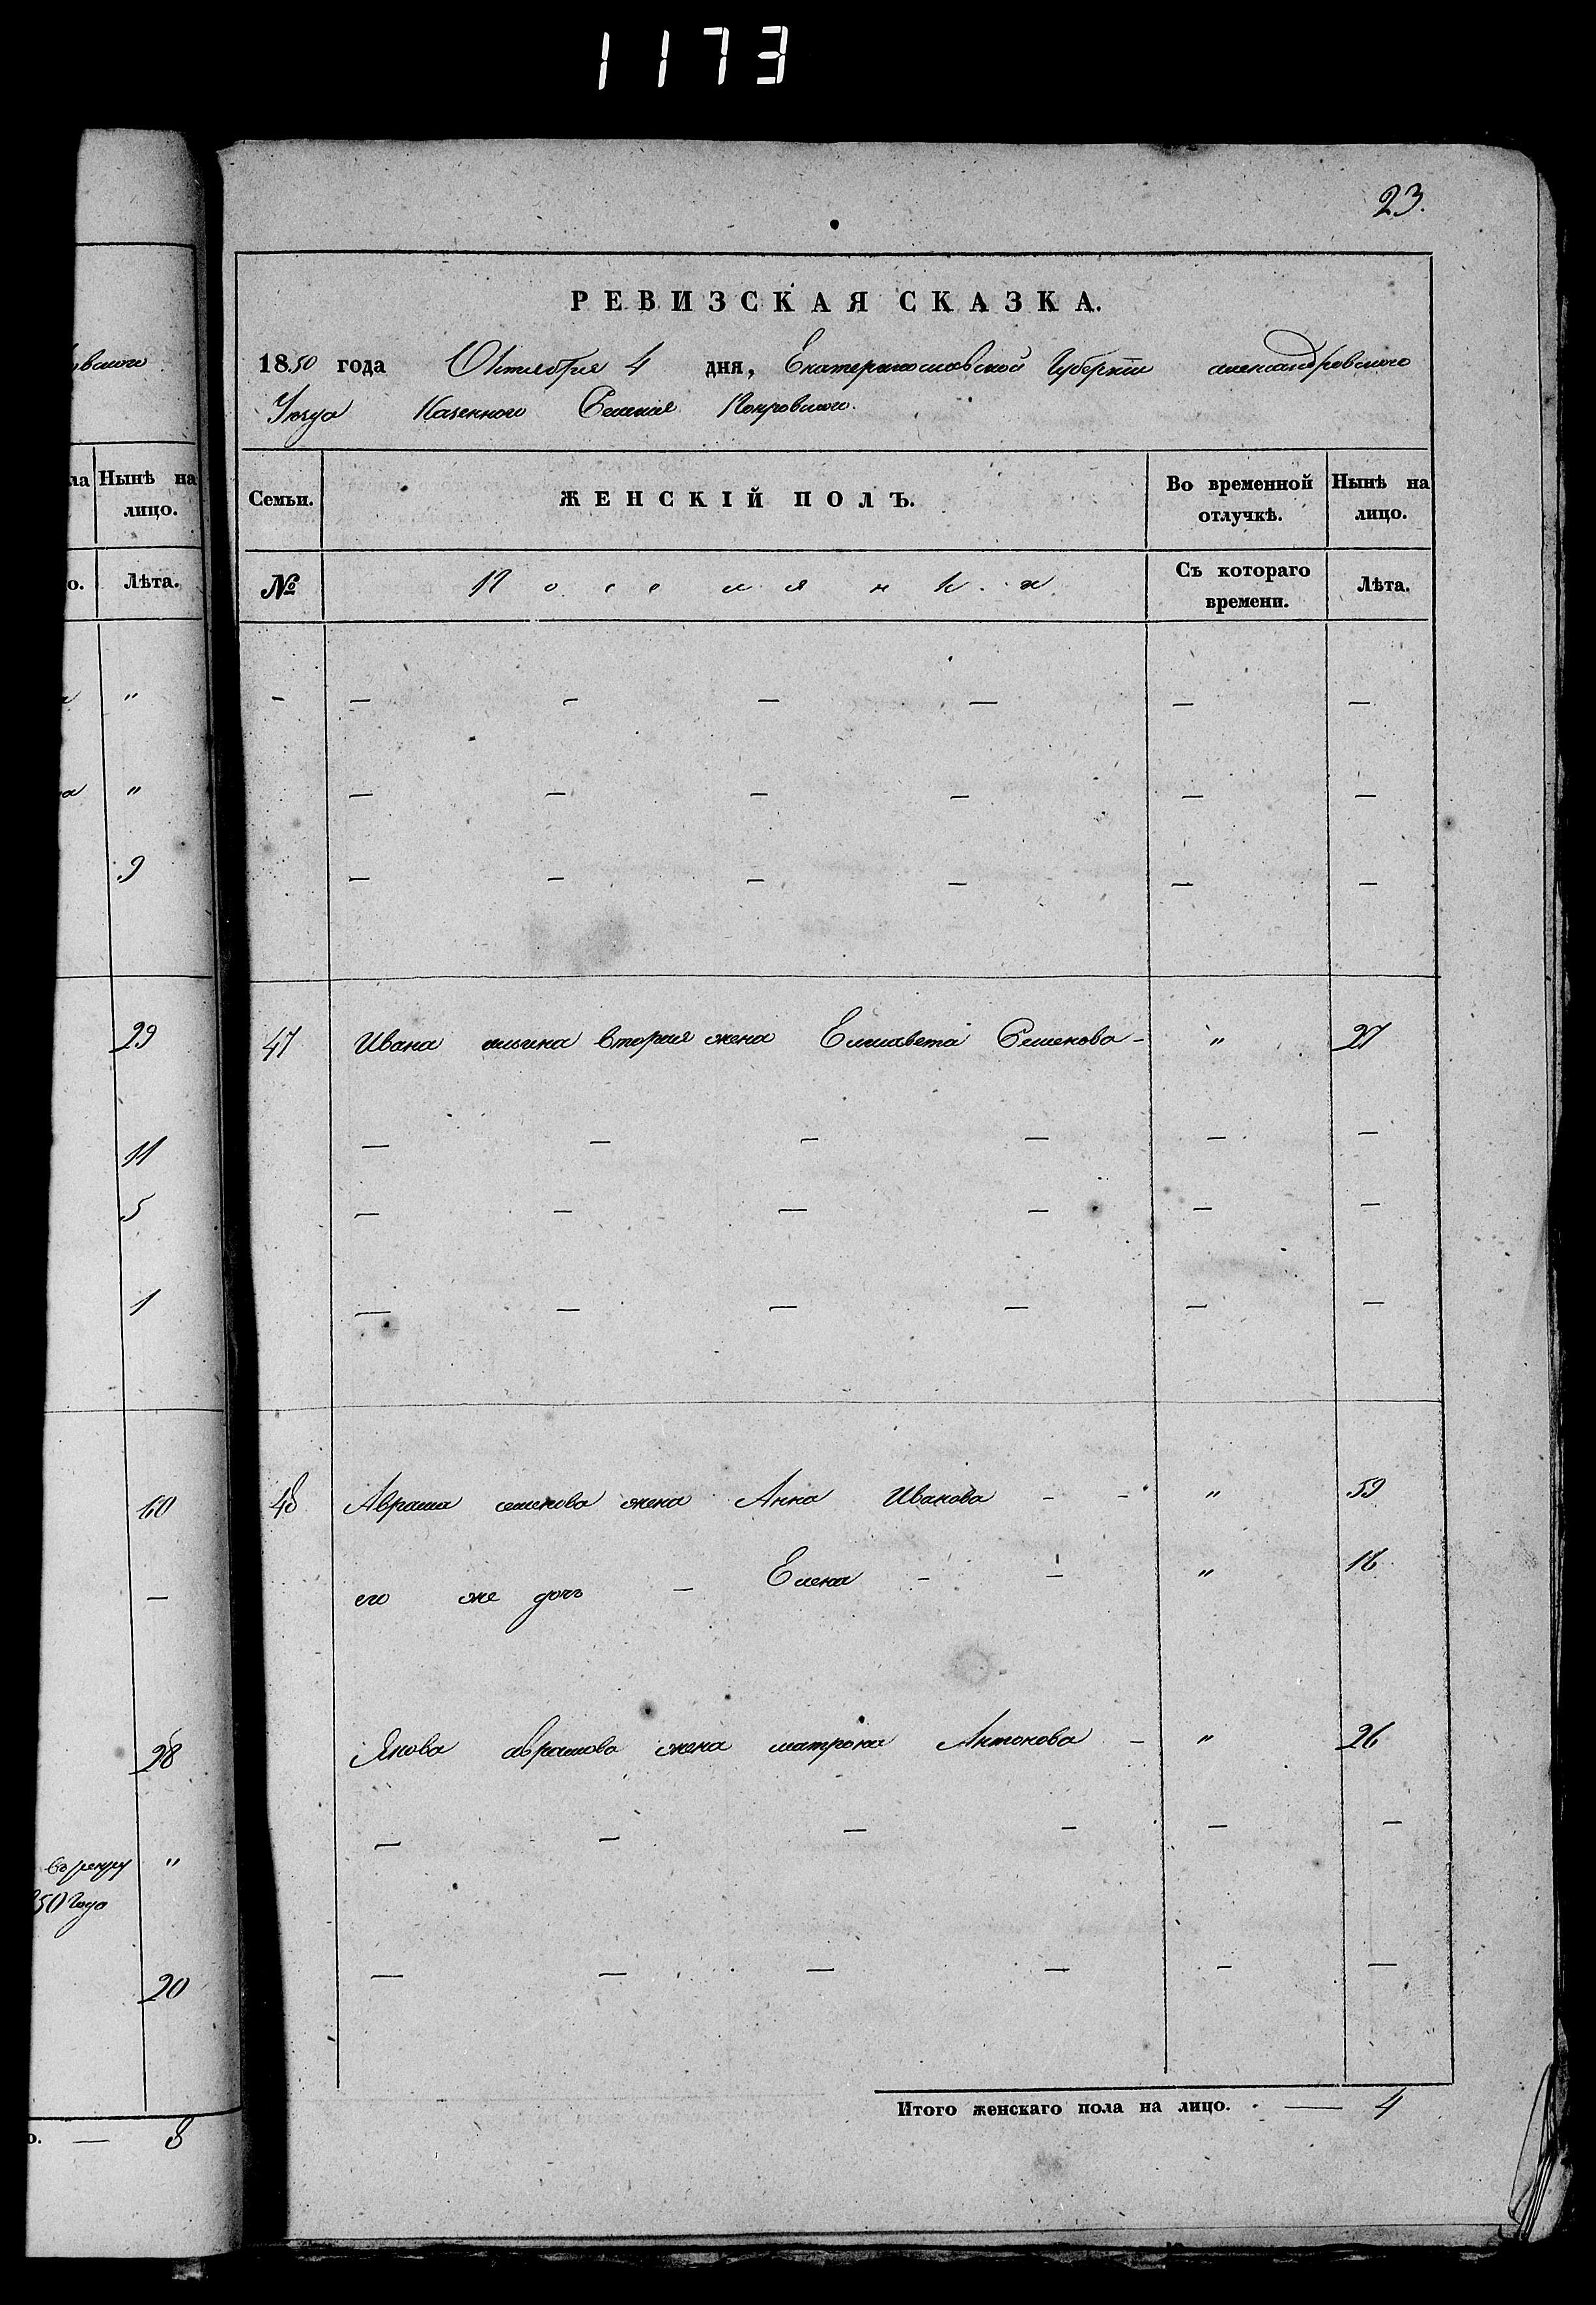 1173
23.
РЕВИЗСКАЯ СКАЗКА.
1850 года Октября 4 дня, Екатеринославской Губернiи александровского
Уезда Казенного Селения Покровского.
Семьи. ЖЕНСКIЙ ПОЛЪ. Во временной отлучкѣ. Нынѣ на лицо.
№ Поселянка Съ котораго времени. Лѣта.
- — - — — — —
— — — — — —
— — — — — —
47 Ивана ильина вторая жена Елисавета Семенова - " 27
— — — — — —
— — — — — —
— — — — — —
48 Абрама семенова жена Анна Иванова - - " 59
его же дочь — Елена - - " 16
Якова абрамова жена матрона Антонова - " 26
— — — — — —
— — — — — —
Итого женскаго пола на лицо. — 4
вского
ла Нынѣ на
лицо.
о. Лѣта.
"
"
9
29
11
5
1
60
—
28
"
50 года
20
о. — 8